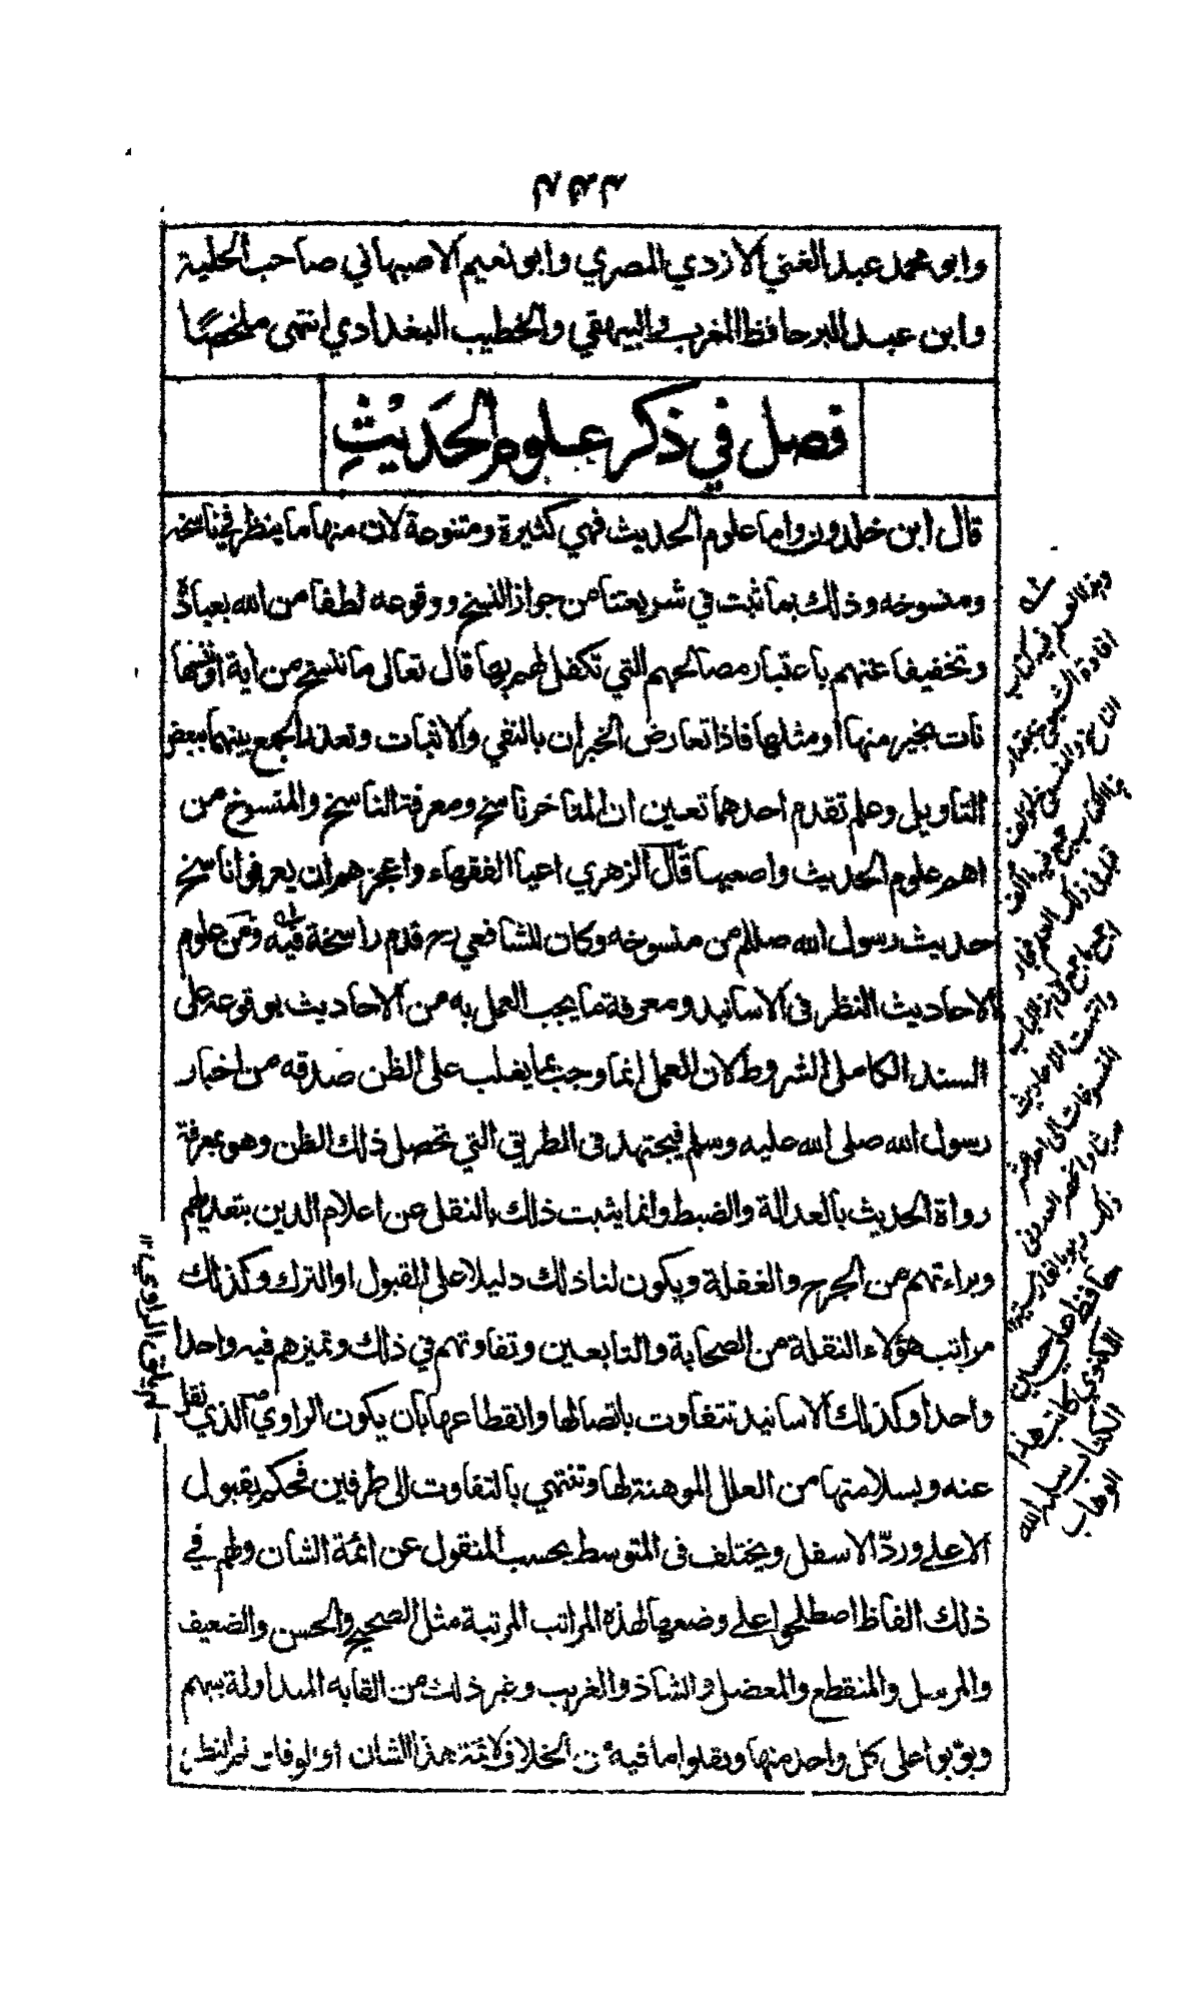 وابو محمد عبد الغني الازدي المصري وابو نعيم الاصبهاني صاحب الحلية
وابن عبد البر حافظ المغرب والبيهقي والخطيب البغدادي انتهى ملخصًا
فصل في ذكر علوم الحديث
قال ابن خلدون واما علوم الحديث فهي كثيرة ومتنوعة لان منها ما ينظر في ناسخه
ومنسوخه وذلك بما ثبت في شريعتنا من جواز النسخ ووقوعه لطفا من الله بعباده
وتخفيفا عنهم باعتبار مصالحهم التي تكفل لهم بها قال تعالى ما ننسخ من اية اوننسها
نات بخير منها او مثلها فاذا تعارض الخبران بالنفي والاثبات وتعذر الجمع بينهما ببعض
التاويل وعلم تقدم احدهما تعين ان المتاخر ناسخ ومعرفة الناسخ والمنسوخ من
اهم علوم الحديث واصعبها قال الزهري اعيا الفقهاء واعجزهم ان يعرفوا ناسخ
حديث رسول الله صللم من منسوخه وكان للشافعي رح قدم راسخة فيه ومن علوم
الاحاديث النظر في الاسانيد ومعرفة ما يجب العمل به من الاحاديث بوقوعه على
السند الكامل الشروط لان العمل انما وجب بما يغلب على الظن صدقه من اخبار
رسول الله صلى الله عليه وسلم فيجتهد في الطريق التي تحصل ذلك الظن وهو بمعرفة
رواة الحديث بالعدالة والضبط وانما يثبت ذلك بالنقل عن اعلام الدين بتعديلهم
وبراءتهم من الجرح والغفلة ويكون لنا ذلك دليلا على القبول او الترك وكذلك
مراتب هؤلاء النقلة من الصحابة والتابعين وتفاوتهم في ذلك وتميزهم فيه واحدا
واحدا وكذلك الاسانيد تتفاوت باتصالها وانقطاعها بان يكون الراوي الذي نقل
عنه وبسلامتها من العلل الموهنة لها وتنتهي بالتفاوت الى طرفين فحكم بقبول
الاعلى وردّ الاسفل ويختلف في المتوسط بحسب المنقول عن ائمة الشان ولهم في
ذلك الفاظ اصطلحوا على وضعها لهذه المراتب المرتبة مثل الصحيح والحسن والضعيف
والمرسل والمنقطع والمعضل والشاذ والغريب وغير ذلك من القابه المتداولة بينهم
وبوّبوا على كل واحد منها ونقلوا ما فيه من الخلاف لائمة هذا الشان او الوفاق ثم النظر
لم يلق الراوي ١٢
حافظ علي حسين
اللكنوي كاتب هذا
الكتاب سلمه الله
الوهاب